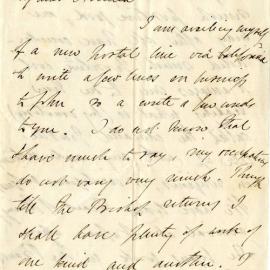 I am availing myself
of a new postal line via California
to write a few lines on
to John so a write a few lines
to you. I do not know that
I have much to say, my occupations
do not vary very much. Though
till the returns I
shall have plenty of work of
one kind and another. I